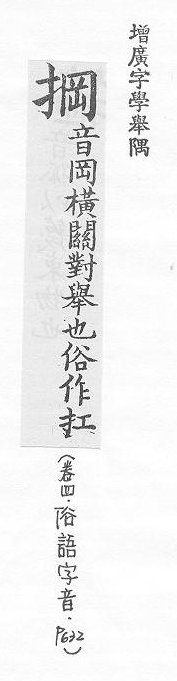 增廣字學舉隅
掆音岡橫關對舉也俗作扛
(卷四·俗語字音·P632)